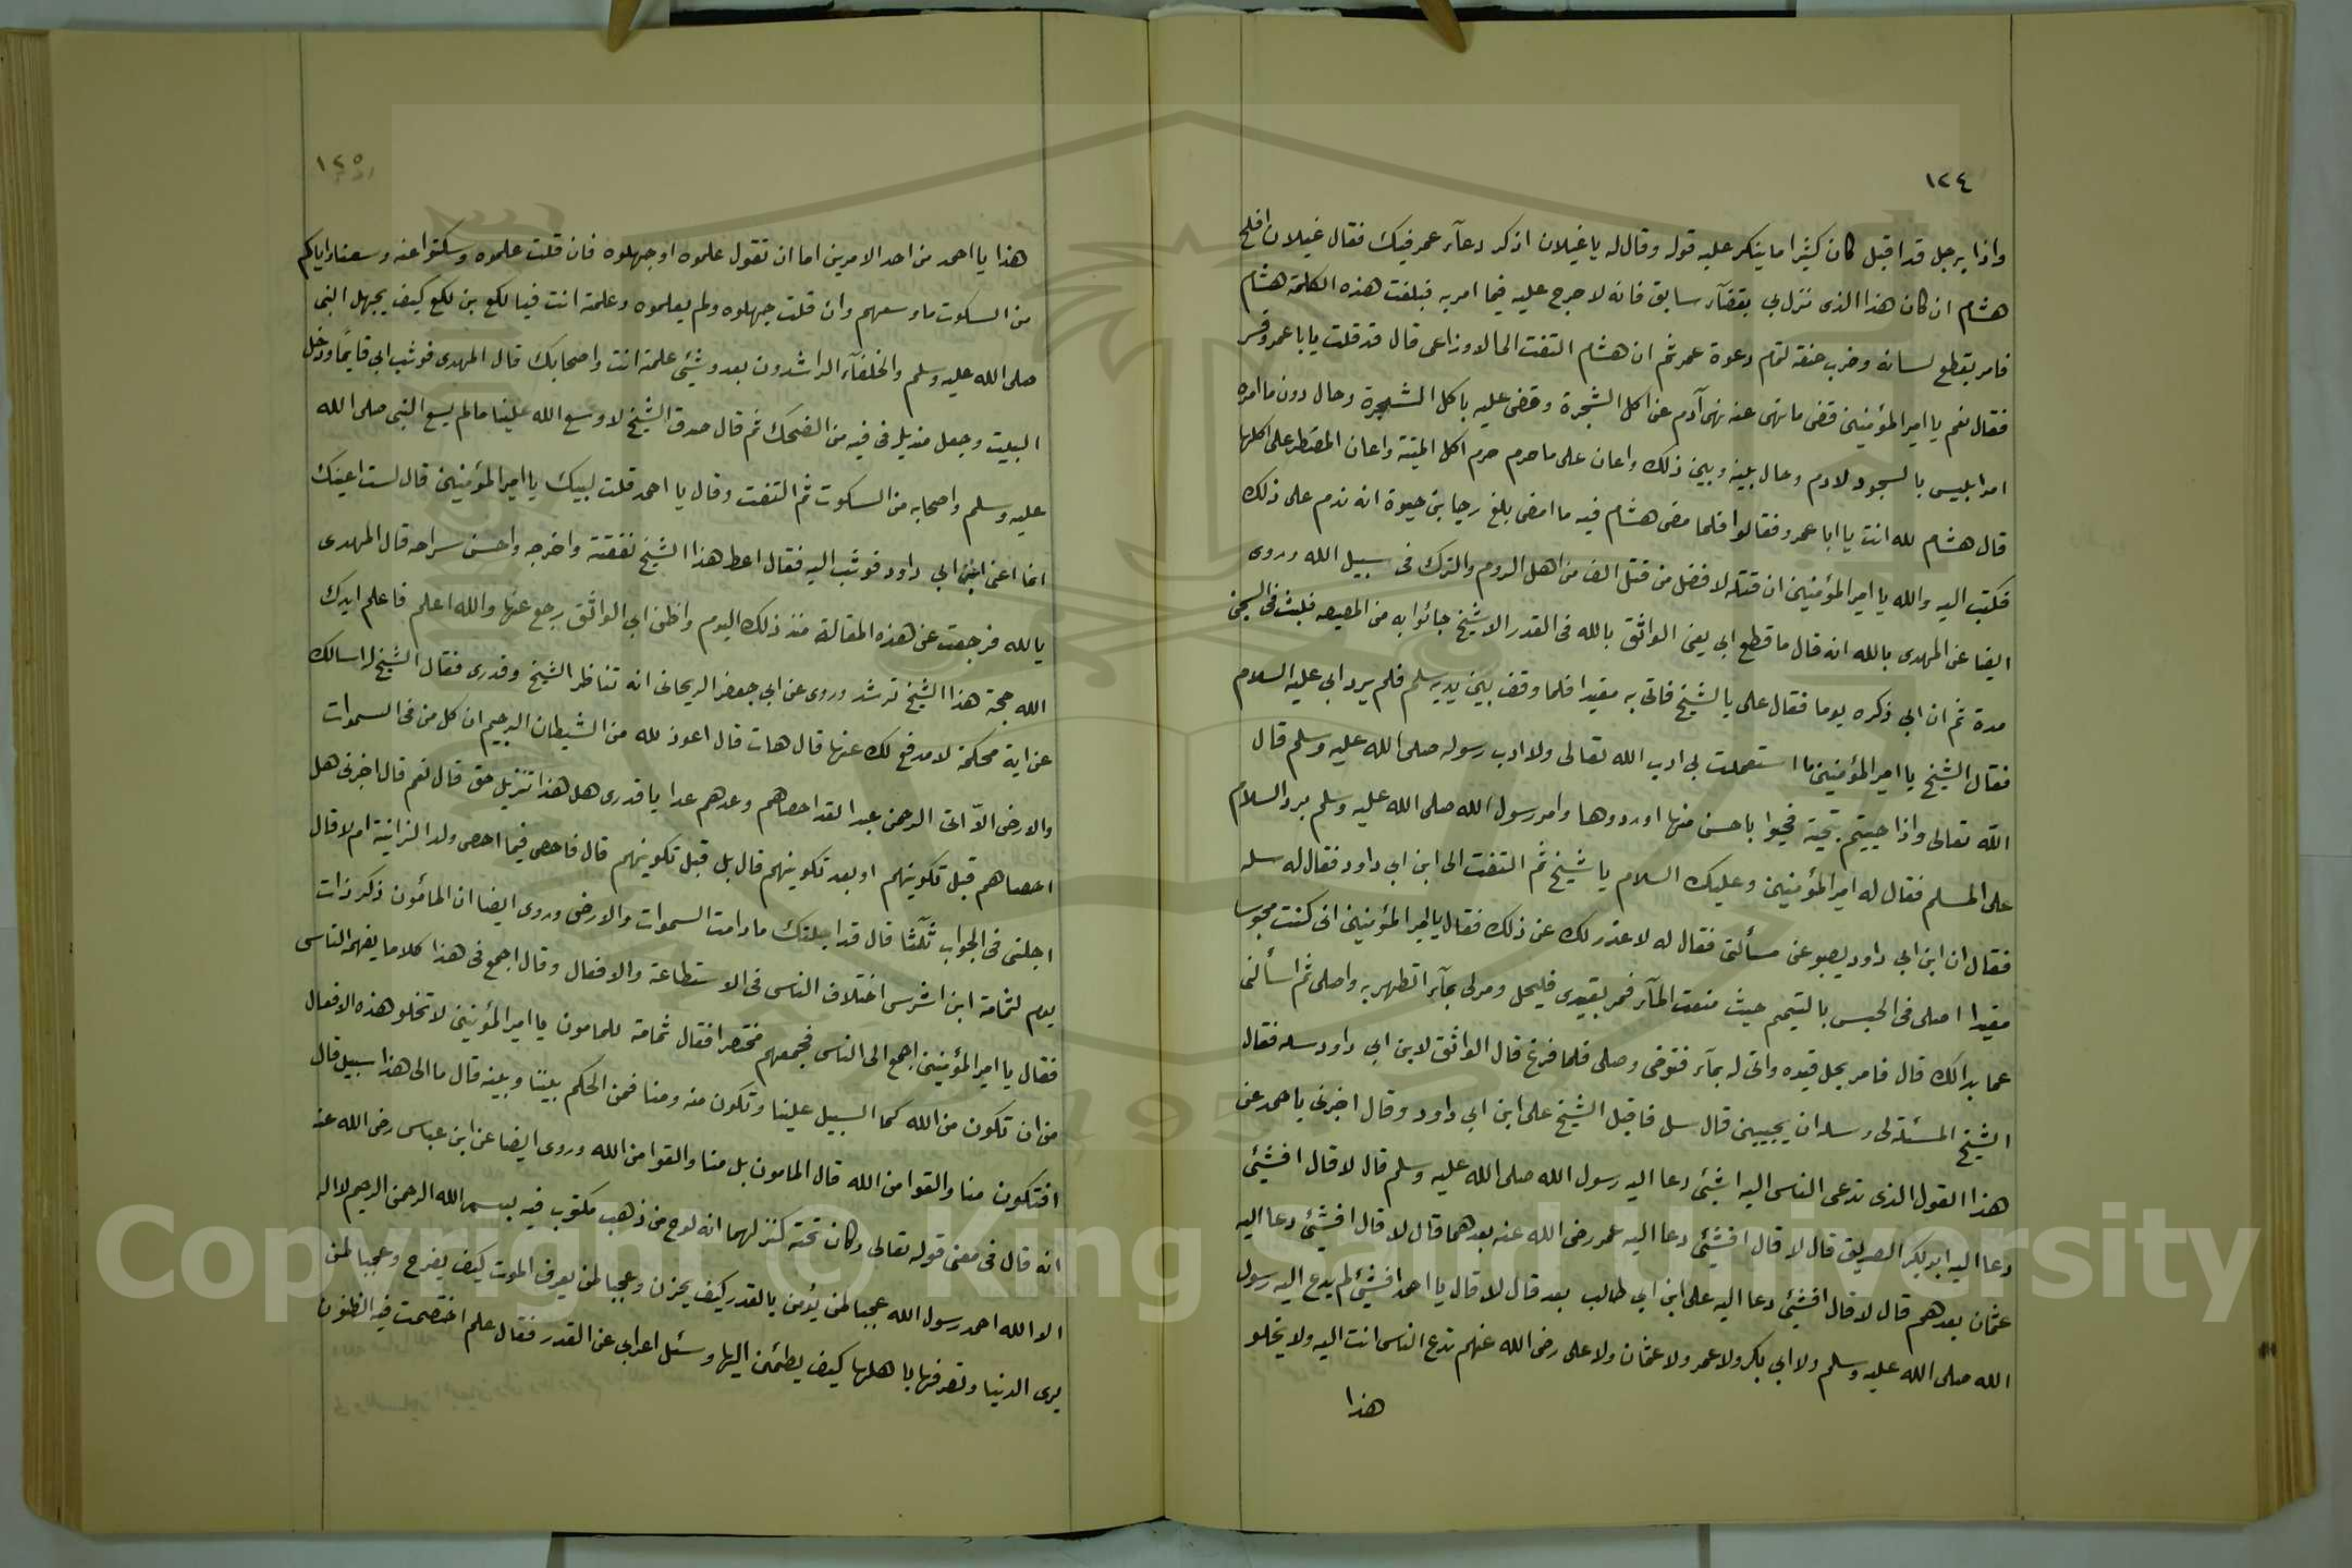 ١٢٤
واذا برجل قد اقبل كان كثيرا ما ينكر عليه قوله وقال له يا غيلان اذكر دعآء عمر فيك فقال غيلان افلح
هشام ان كان هذا الذى نزل بي بقضآء سابق فانه لا حرج عليه فيما امر به فبلغت هذه الكلمة هشام
فامر بقطع لسانه وضرب عنقه لتمام دعوة عمر ثم ان هشام التفت الى الاوزاعى قال قد قلت يا ابا عمرو فسر
فقال نعم يا امير المؤمنين قضى ما نهى عنه نهى آدم عن اكل الشجرة وقضى عليه باكل الشجرة وحال دون ما امره
امر ابليس بالسجود لادم وحال بينه وبين ذلك واعان على ما حرم حرم اكل الميتة واعان المضطر على اكلها
قال هشام لله انت يا ابا عمرو فقالوا فلما مضى هشام فيه ما امضى بلغ رجا بن حيوة انه ندم على ذلك
فكتب اليه والله يا امير المؤمنين ان قتله لافضل من قتل الف من اهل الروم والترك فى سبيل الله وروى
ايضا عن المهدى بالله انه قال ما قطع ابي يعنى الواثق بالله فى القدر الا شيخ جائوا به من المصيصه فلبث فى السجن
مدة ثم ان ابي ذكره يوما فقال على يا الشيخ فاتى به مقيدا فلما وقف بين يديه سلم فلم يرد ابي عليه السلام
فقال الشيخ يا امير المؤمنين ما استعملت بى ادب الله تعالى ولا ادب رسوله صلى الله عليه وسلم قال
الله تعالى واذا حييتم بتحية فحيوا باحسن منها او ردوها وامر رسول الله صلى الله عليه وسلم برد السلام
على المسلم فقال له امير المؤمنين وعليك السلام يا شيخ ثم التفت الى ابن ابي داود فقال له سله
فقال ان ابن ابي داود يصبو عن مسألتى فقال له لا عذر لك عن ذلك فقال يا امير المؤمنين انى كنت محبوسا
مقيدا اصلى فى الحبس بالتيمم حيث منعت المآء فمر بقيدى فليحل ومر لى بمآء اتطهر به واصلى ثم اسألنى
عما بدالك قال فامر بحل قيده واتى له بمآء فتوضى وصلى فلما فرغ قال الواثق لابن ابي داود سله فقال
الشيخ المسئلة لى وسله ان يجيبين قال سل فاقبل الشيخ على ابن ابي داود وقال اخبرنى يا احمد عن
هذا القول الذى تدعى الناس اليه اشيئ دعا اليه رسول الله صلى الله عليه وسلم قال لا قال افشيئ
دعا اليه ابو بكر الصديق قال لا قال افشيئ دعا اليه عمر رضى الله عنه بعدهما قال لا قال افشيئ دعا اليه
عثمان بعدهم قال لا قال افشيئ دعا اليه على ابن ابي طالب بعد قال لا قال يا احمد افشيئ لم يدع اليه رسول
الله صلى الله عليه وسلم ولا ابي بكر ولا عمر ولا عثمان ولا على رضى الله عنهم تدع الناس انت اليه ولا يخلو
هذا
١٢٥
هذا يا احمد من احد الامرين اما ان تقول علموه او جهلوه فان قلت علموه وسكتوا عنه وسعنا واياكم
من السكوت ما وسعهم وان قلت جهلوه ولم يعلموه وعلمة انت فيا لكع بن لكع كيف يجهل النبى
صلى الله عليه وسلم والخلفآء الراشدون بعده وشيئ علمته انت واصحابك قال المهدى فوثب ابي قايما ودخل
البيت وجعل منديله فى فيه من الضحك ثم قال صدق الشيخ لا وسع الله علينا ما لم يسع النبى صلى الله
عليه وسلم واصحابه من السكوت ثم التفت وقال يا احمد قلت لبيك يا امير المؤمنين قال لست اعينك
انما اعنى ابن ابي داود فوثب اليه فقال اعط هذا الشيخ نفقته واخرجه واحسن سراحه قال المهدى
بالله فرجعت عن هذه المقالة منذ ذلك اليوم واظن ابي الواثق رجع عنها والله اعلم فاعلم ايدك
الله حجة هذا الشيخ ترشد وروى عن ابي جعفر الريحانى انه تناظر الشيخ وقدرى فقال الشيخ له اسالك
عن اية محكمة لا مدفع لك عنها قال هات قال اعوذ لله من الشيطان الرجيم ان كل من فى السموات
والارض الآ اتى الرحمن عبدا لقد احصاهم وعدهم عدا يا قدرى هل هذا تنزيل حق قال نعم قال اخبرنى هل
احصاهم قبل تكوينهم او بعد تكوينهم قال بل قبل تكوينهم قال فاحصى فيما احصى ولد الزانية ام لا قال
اجلنى فى الجواب ثلثا قال قد اجلتك ما دامت السموات والارض وروى ايضا ان المأمون ذكر ذات
يوم لثمامة ابن اشرس اختلاف الناس فى الاستطاعة والافعال وقال اجمع فى هذا كلاما يفهم الناس
فقال يا امير المؤمنين اجمع الى الناس فجمعهم مختصرا فقال ثمامة للمامون يا امير المؤمنين لا تخلو هذه الافعال
من ان تكون من الله كما السبيل علينا وتكون منه ومنا فمن الحكم بيننا وبينه قال ما الى هذا سبيل قال
افتكون منا والقوا من الله قال المامون بل منا والقوا من الله وروى ايضا عن ابن عباس رضى الله عنه
انه قال فى معنى قوله تعالى وكان تحته كنز لهما انه لوح من ذهب مكتوب فيه بسم الله الرحمن الرحيم لا اله
الا الله احمد رسول الله عجبا لمن يؤمن بالقدر كيف يحزن وعجبا لمن يعرف الموت كيف يفرح وعجبا لمن
يرى الدنيا وتصرفها باهلها كيف يطمئن اليها وسئل اعرابي عن القدر فقال علم اختصمت فيه الظنون
Copyright © King Saud University
195